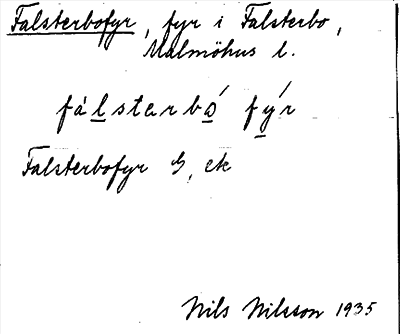 Falsterbofyr, fyr i Falsterbo,
Malmöhus l.
fàlstarbó fýr
Falsterbofyr G, ek
Nils Nilsson 1935